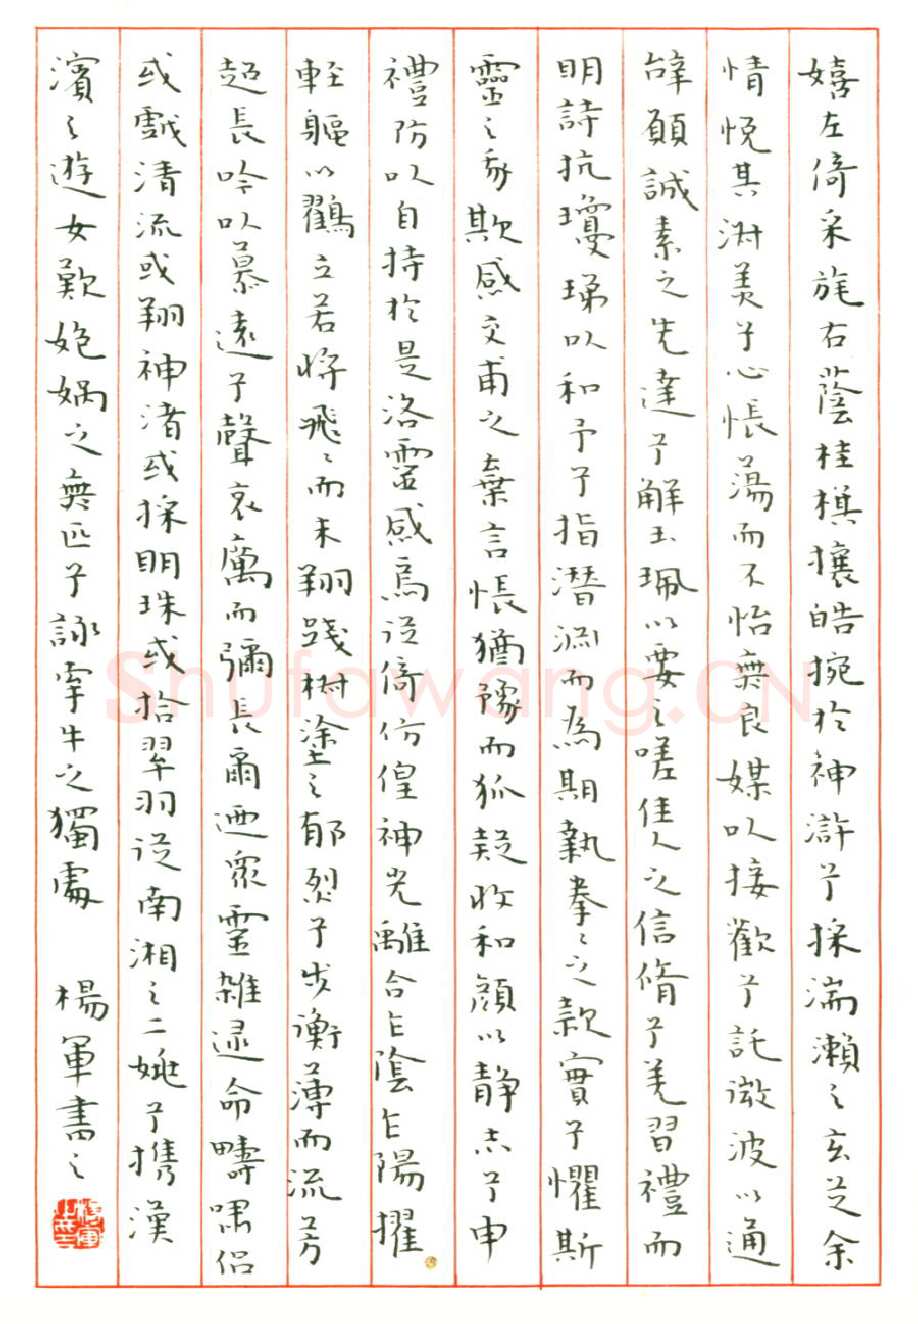 嬉左倚采旄右蔭桂棋攘皓捥於神滸兮採湍瀨之玄芝余
情悅其淑美兮心悵蕩而不怡無良媒以接歡兮託微波以通
辭願誠素之先達兮解玉珮以要之嗟佳人之信脩兮羌習禮而
明詩抗瓊珶以和予兮指潛淵而為期執拳〻之款實兮懼斯
靈之我欺感交甫之棄言悵猶豫而狐疑收和顏以靜志兮申
禮防以自持於是洛靈感焉徙倚彷徨神光離合乍陰乍陽擢
輕軀以鶴立若將飛〻而未翔踐椒塗之郁烈兮步衡薄而流芳
超長吟以慕遠兮聲哀厲而彌長爾迺眾靈雜遝命疇嘯侶
或戲清流或翔神渚或採明珠或拾翠羽從南湘之二姚兮攜漢
濱之遊女歎媧之無匹兮詠牽牛之獨處 楊軍書之
Shufawang.CN